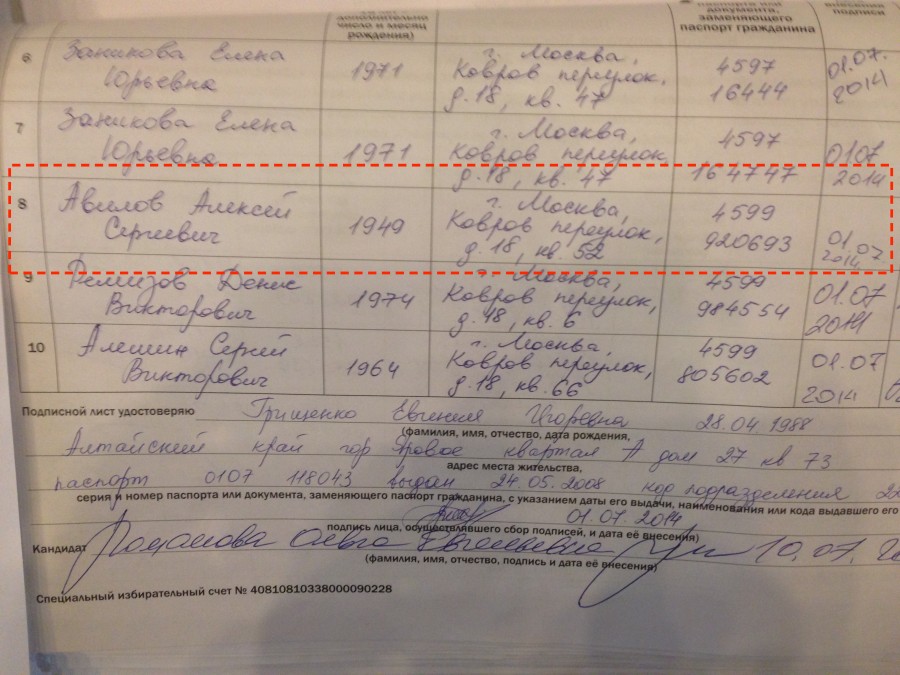 дополнительно
число и месяц
рождения)
паспорта или
документа,
заменяющего
паспорт гражданина
внесения
подписи
6 Заникова Елена Юрьевна 1971 г. Москва, Ковров переулок, д.18, кв. 47 4597 16444 01.07. 2014
7 Заникова Елена Юрьевна 1971 г. Москва, Ковров переулок, д.18, кв. 47 4597 164747 01.07 2014
8 Авилов Алексей Сергеевич 1949 г. Москва, Ковров переулок, д.18, кв. 52 4599 920693 01.07. 2014
9 Ремизов Денис Викторович 1974 г. Москва, Ковров переулок, д.18, кв. 6 4599 984554 01.07 2014
10 Алешин Сергей Викторович 1964 г. Москва, Ковров переулок, д.18, кв.66 4599 805602 01.07 2014
Подписной лист удостоверяю Грищенко Евгения Игоревна 28.04 1988
(фамилия, имя, отчество, дата рождения,
Алтайский край гор Яровое квартал А дом 27 кв 73
адрес места жительства,
паспорт 0107 118043 выдан 24.05.2008 код подразделения
серия и номер паспорта или документа, заменяющего паспорт гражданина, с указанием даты его выдачи, наименования или кода выдавшего его
01.07.2014
подпись лица, осуществлявшего сбор подписей, и дата её внесения)
Кандидат Романова Ольга Евгеньевна 10.07.
(фамилия, имя, отчество, подпись и дата её внесения)
Специальный избирательный счет № 40810810338000090228